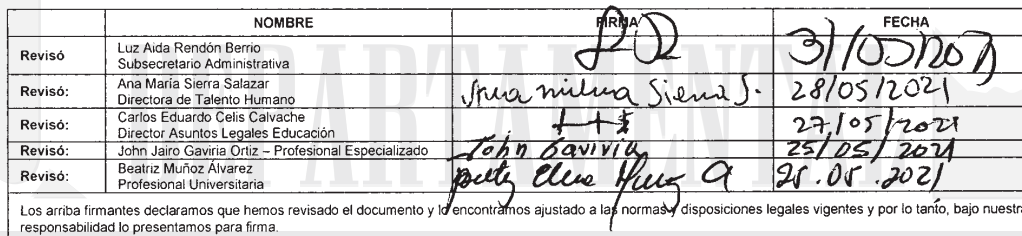 NOMBRE FIRMA FECHA
Revisó Luz Aida Rendón Berrio
Subsecretario Administrativa 31/05/2021
Revisó: Ana María Sierra Salazar
Directora de Talento Humano Ana milena Sierra S. 28/05/2021
Revisó: Carlos Eduardo Celis Calvache
Director Asuntos Legales Educación 27/05/2021
Revisó: John Jairo Gaviria Ortiz – Profesional Especializado John Gaviria 25/05/2021
Revisó: Beatriz Muñoz Álvarez
Profesional Universitaria 25.05.2021
Los arriba firmantes declaramos que hemos revisado el documento y lo encontramos ajustado a las normas y disposiciones legales vigentes y por lo tanto, bajo nuestra
responsabilidad lo presentamos para firma.
DEPARTAMENTO